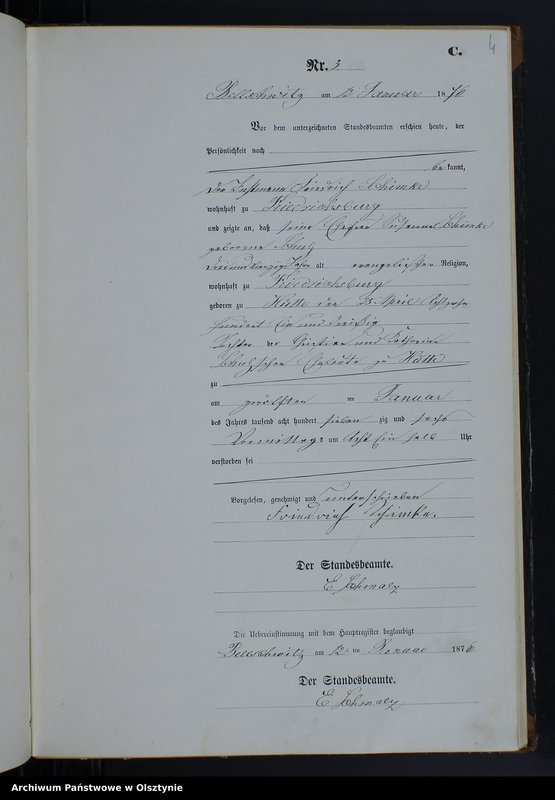 4
C.
Nr. 3
Bellschwitz am 12 Januar 1876
Vor dem unterzeichneten Standesbeamten erschien heute, der
Persönlichkeit nach
bekannt,
der Instmann Friedrich Schimke
wohnhaft zu Friedrichsburg
und zeigte an, daß seine Ehefrau Susanna Schimke
geborene Schulz
alt evangelischer Religion,
wohnhaft zu Friedrichsburg
geboren zu Hütte den 23. April Achtzehn
hundert Ein und dreißig
Tochter der Christian und Catharina
Schulzschen Eheleute zu Hütte
zu
am zwölften ten Januar
des Jahres tausend acht hundert sieben zig und sechs
Vormittags um Acht Ein halb Uhr
verstorben sei
Vorgelesen, genehmigt und unterschrieben
Friedrich Schimke.
Der Standesbeamte.
E
Die Uebereinstimmung mit dem Hauptregister beglaubigt
Bellschwitz am 12 ten Januar 1876
Der Standesbeamte.
E
Archiwum Państwowe w Olsztynie